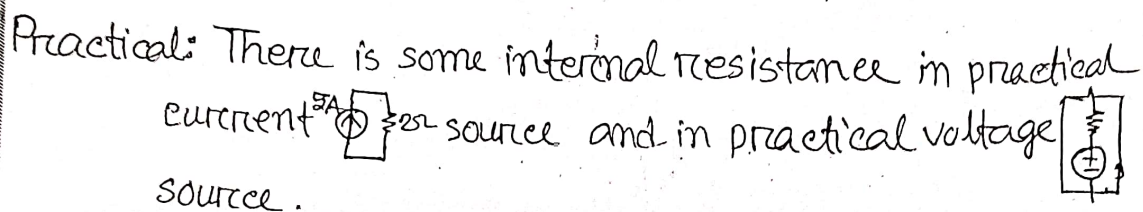 Practical: There is some internal resistance in practical
current 5A 2Ω source and in practical voltage
source.